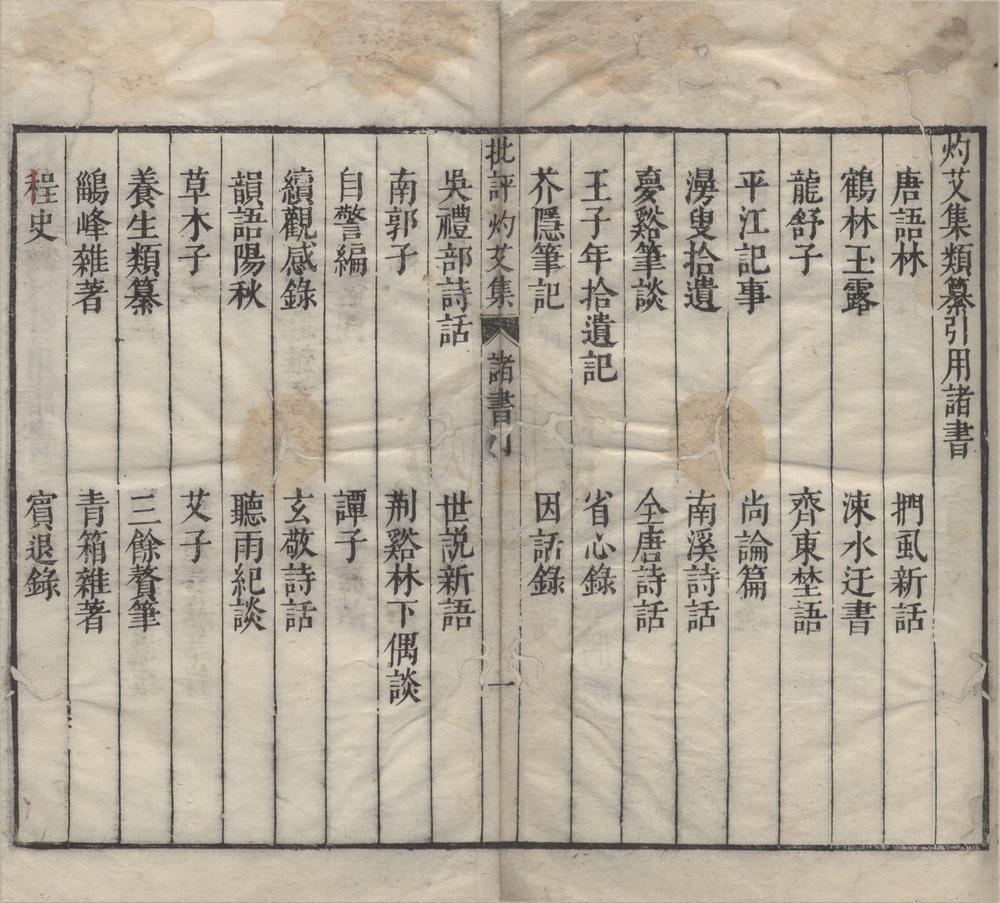 灼艾集類纂引用諸書
唐語林　捫虱新話
鶴林玉露　涑水迂書
龍舒子　齊東埜語
平江記事　尚論篇
漫叟拾遺　南溪詩話
夢谿筆談　全唐詩話
王子年拾遺記　省心錄
芥隱筆記　因話錄
批評灼艾集　諸書　一
吳禮部詩話　世說新語
南郭子　荆谿林下偶談
自警編　譚子
續觀感錄　玄敬詩話
韻語陽秋　聽雨紀談
草木子　艾子
養生類纂　三餘贅筆
鷊峰雜著　青箱雜著
桯史　賓退錄